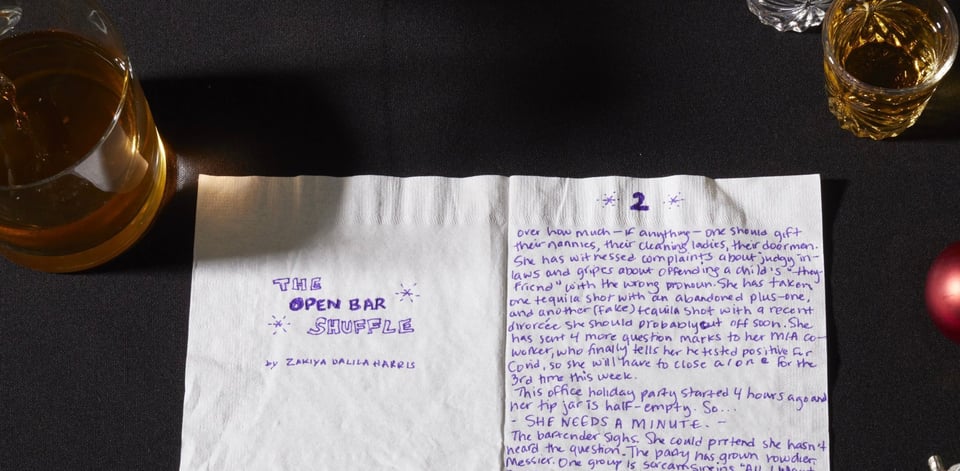 THE
OPEN BAR
SHUFFLE
by ZAKIYA DALILA HARRIS
2
over how much—if anything—one should gift
their nannies, their cleaning ladies, their doormen.
She has witnessed complaints about judgy in-
laws and gripes about offending a child's "they-
friend" with the wrong pronoun. She has taken
one tequila shot with an abandoned plus-one,
and another (fake) tequila shot with a recent
divorcée she should probably cut off soon. She
has sent 4 more question marks to her MIA co-
worker, who finally tells her he tested positive for
Covid, so she will have to close alone for the
3rd time this week.
This office holiday party started 4 hours ago and
her tip jar is half-empty. So...
- SHE NEEDS A MINUTE. -
The bartender sighs. She could pretend she hasn't
heard the question. The party has grown rowdier.
Messier. One group is scream singing "All I Want